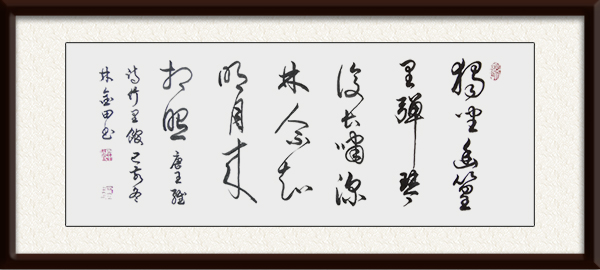 獨坐幽篁
里彈琴
復長嘯深
林人不知
明月来
相照 唐王維
詩竹里館 己亥冬
林金田书